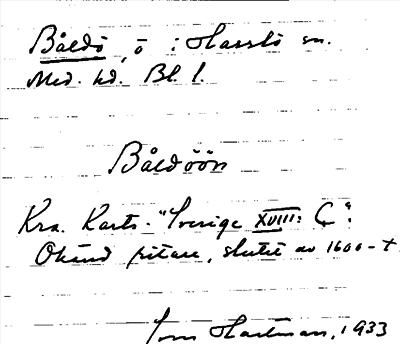 Båldö, ö i Hasslö sn.
Med. hd. Bl. l.
Båldöön
Kra. Kart. "Sverige XVIII: C".
Okänd ritare, slutet av 1600-t
Hartman, 1933